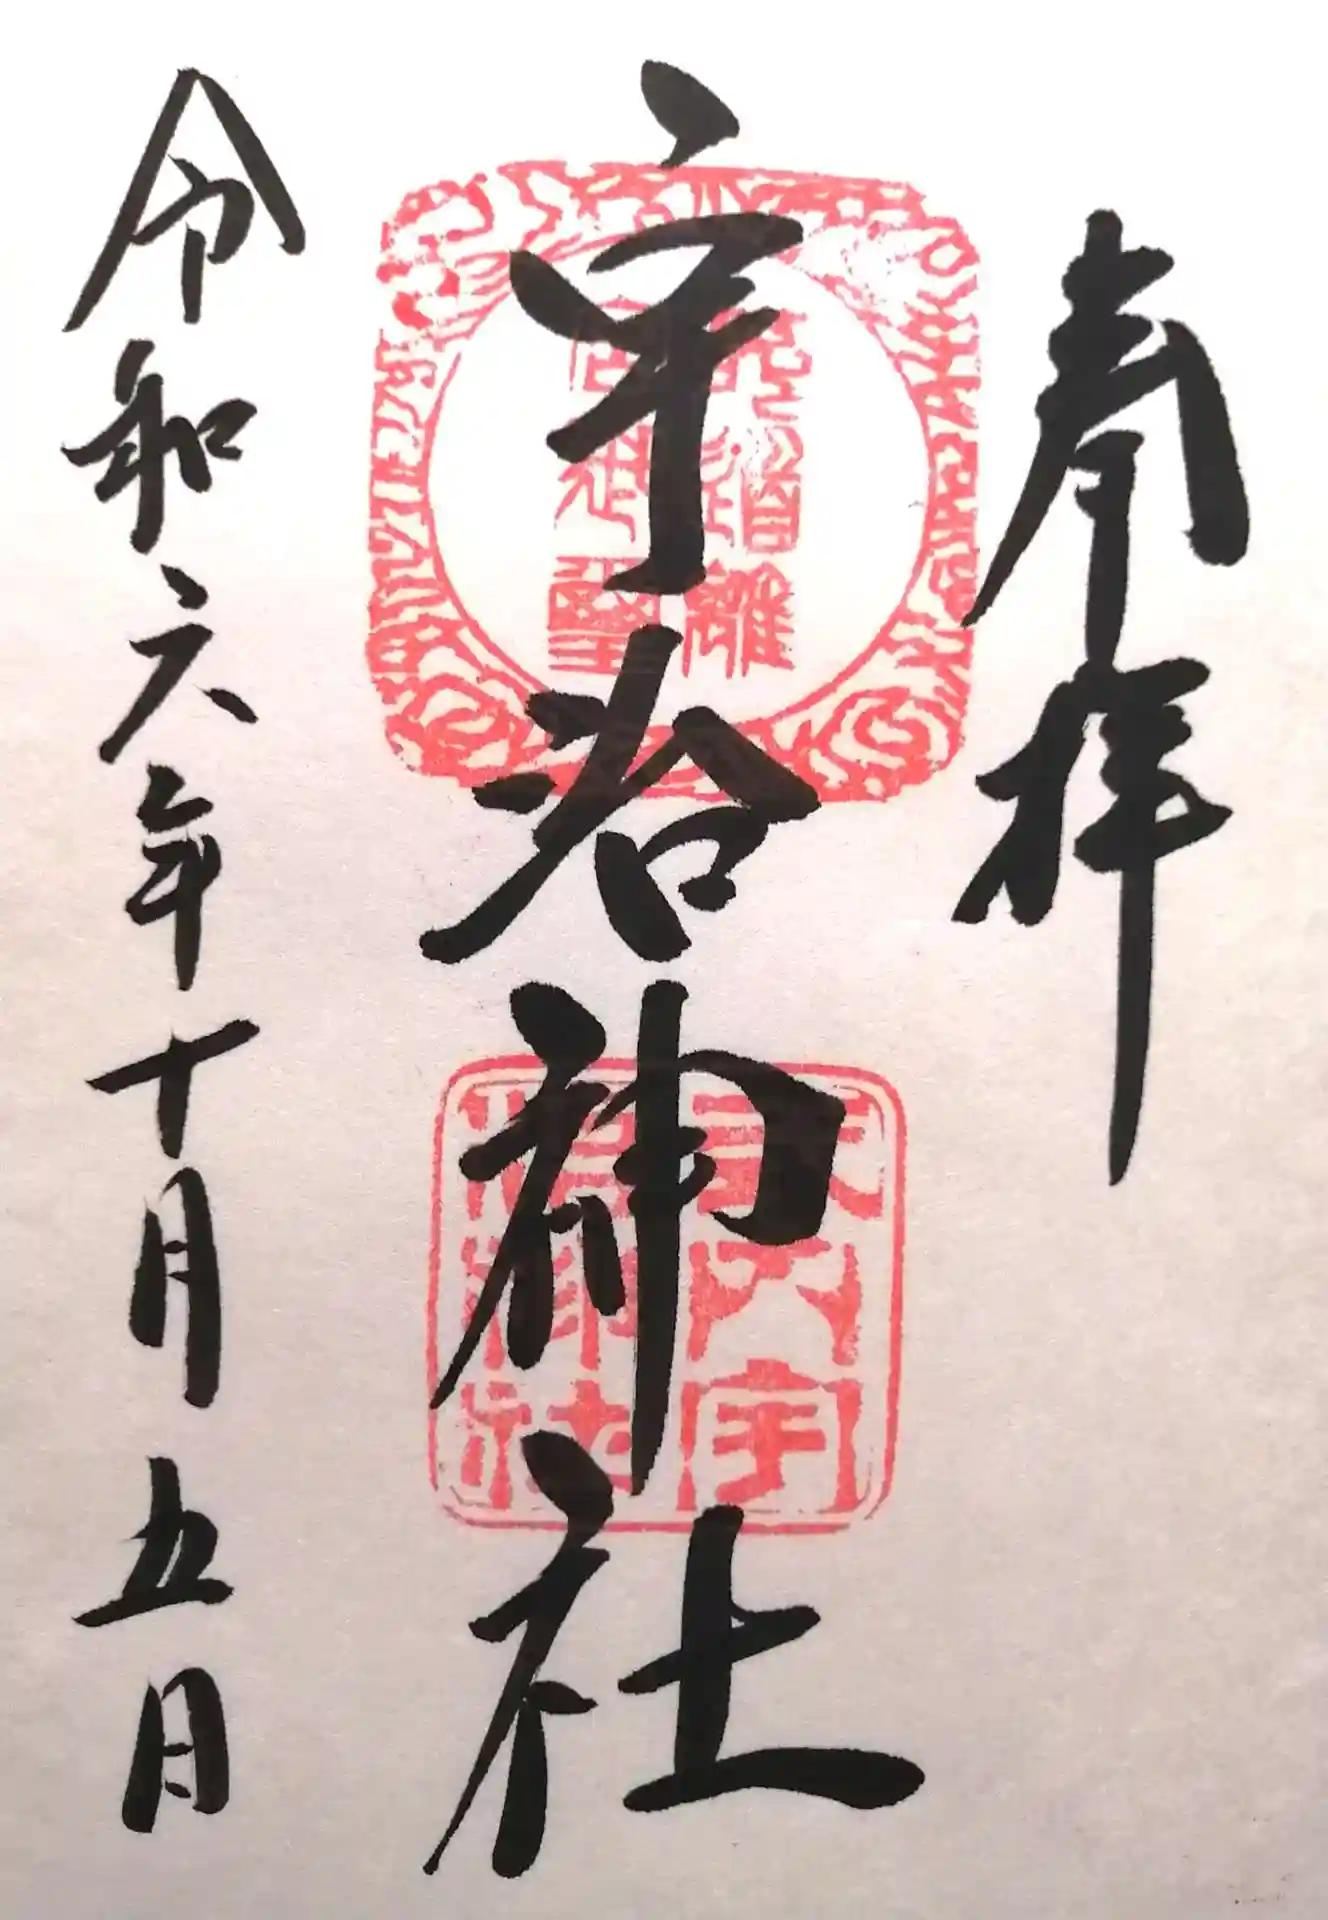 奉拝
宇治神社
式内宇
治神社
令和六年十月五日